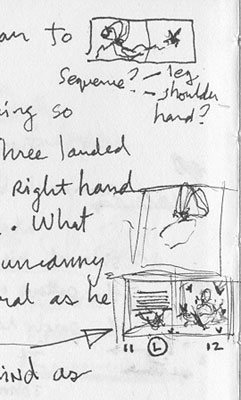 to
Sequence? — leg
— shoulder
hand?
so
three landed
Right hand
. What
uncanny
as he
11 (L) 12
as